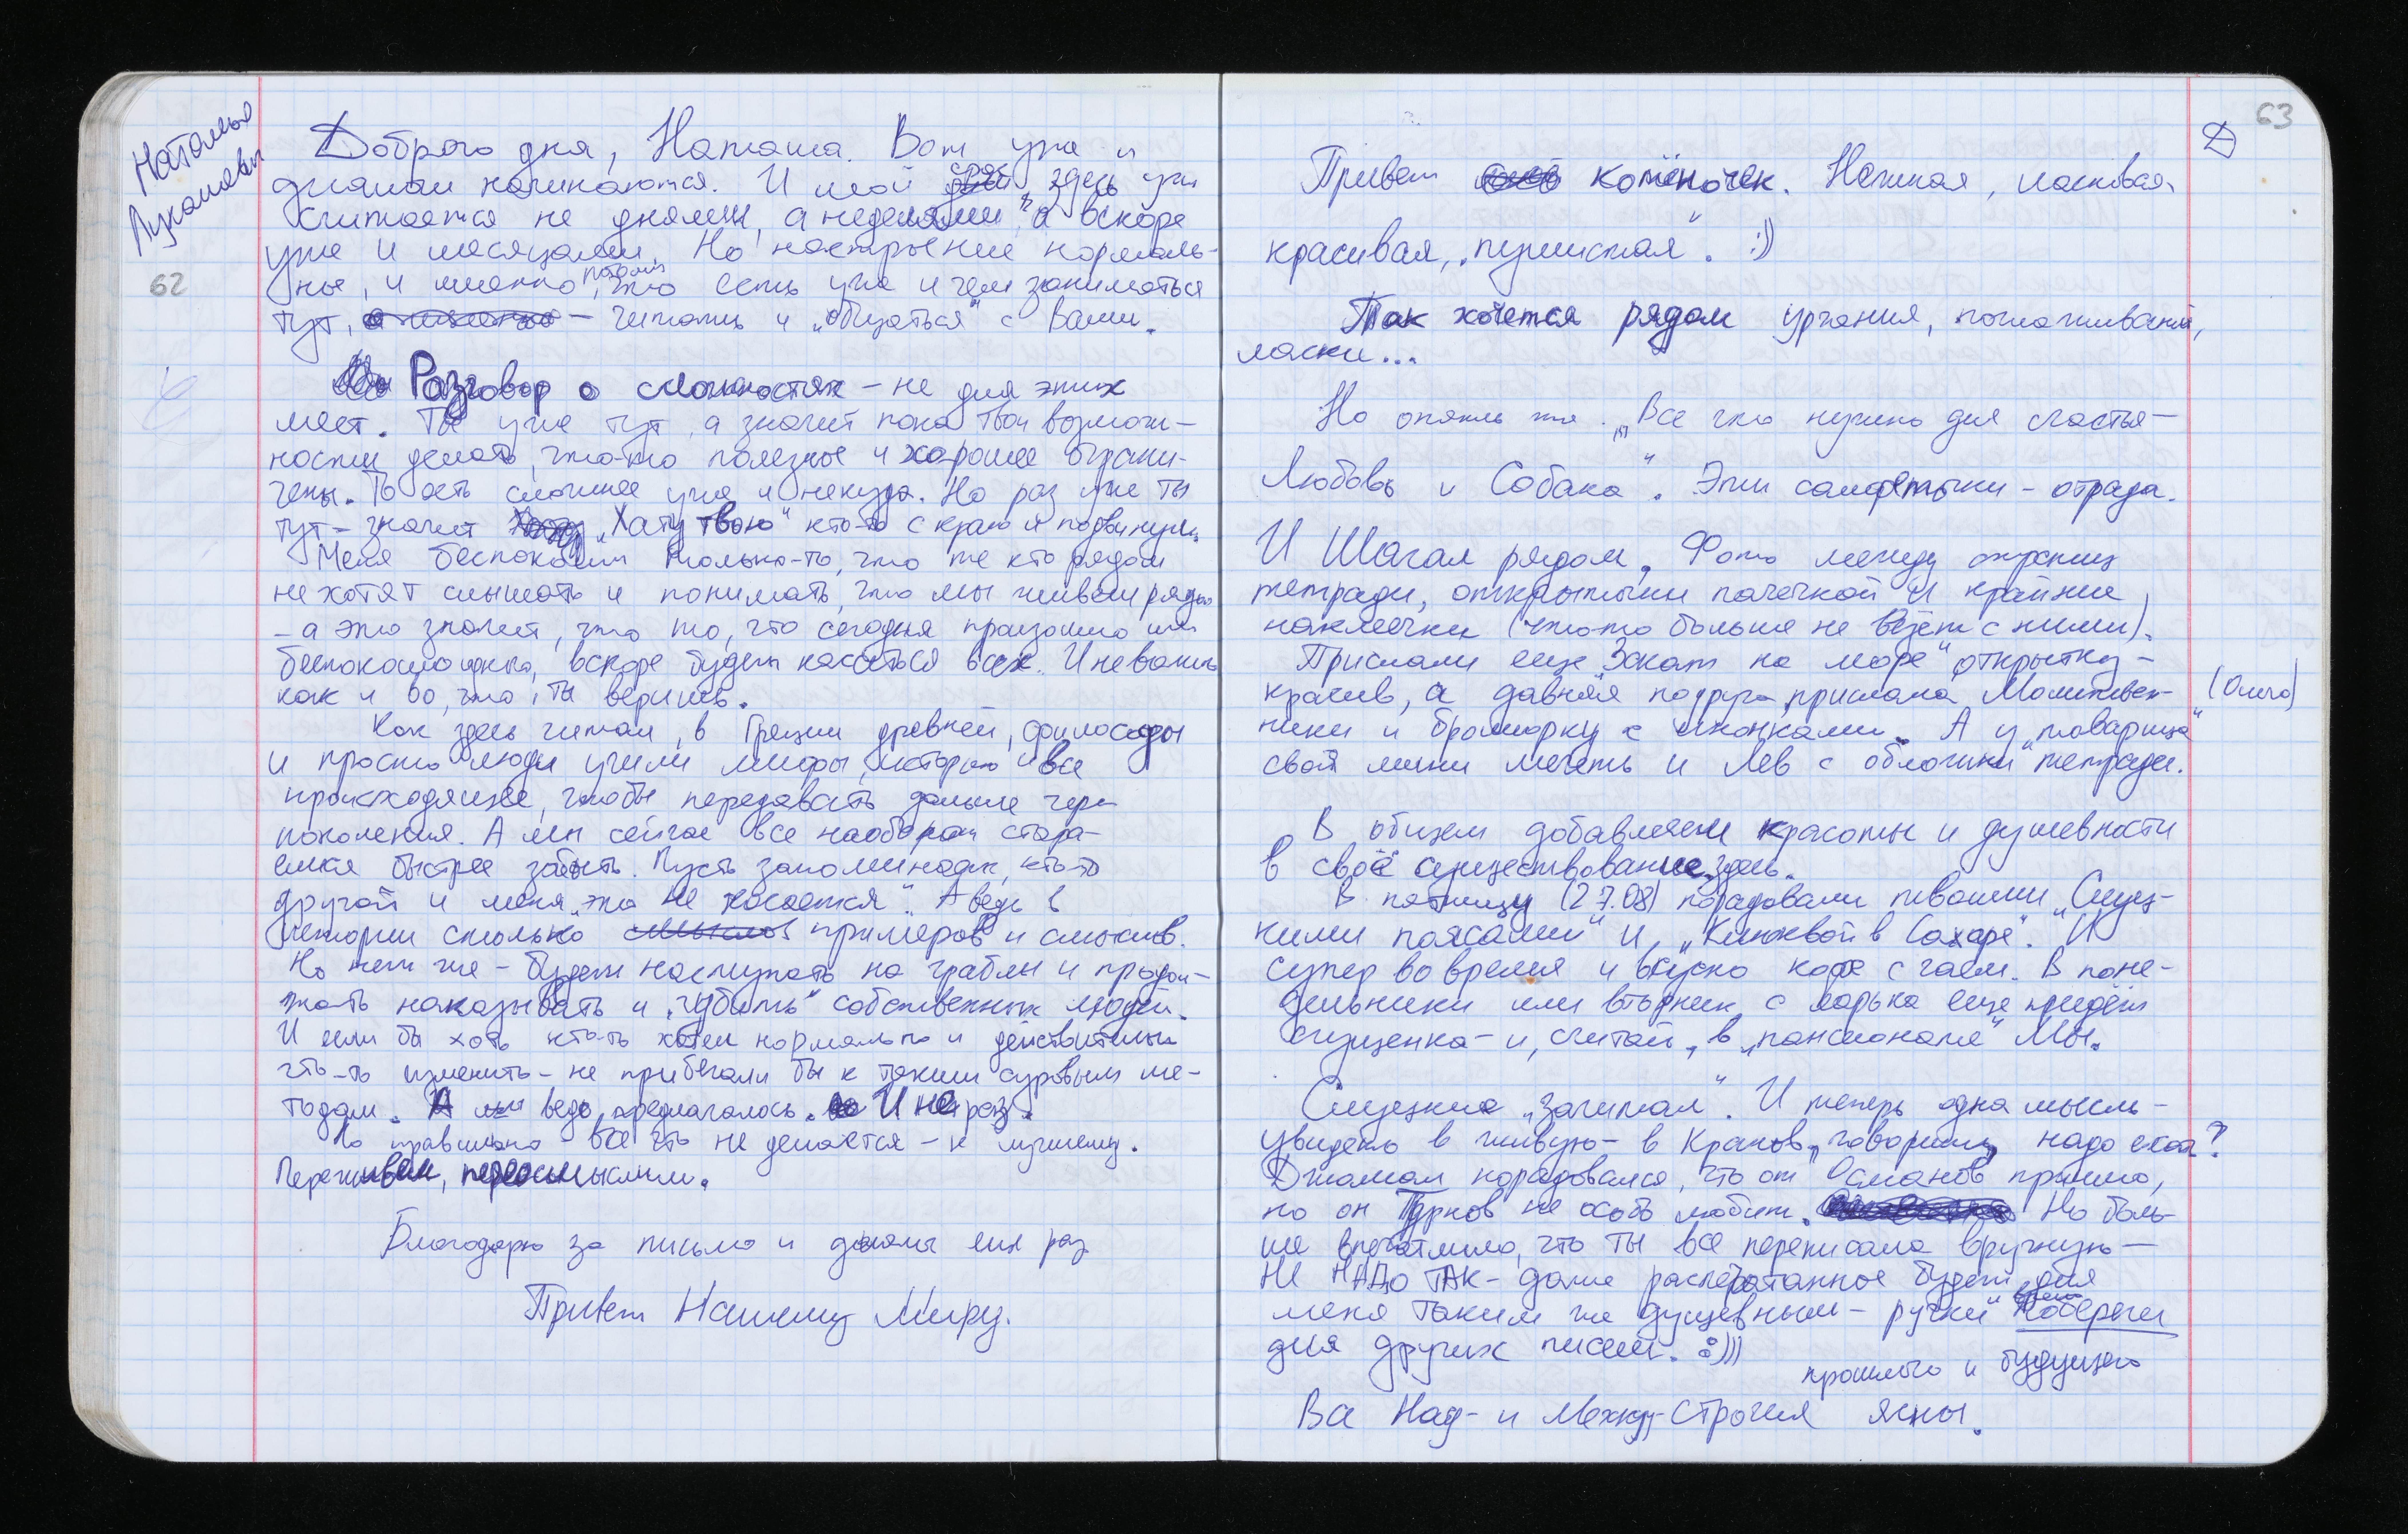 Наталья
Лукашевич
62
Доброго дня, Наташа. Вот уже и
начинаются. И мой срок здесь уже
считается не днями, а неделями, а вскоре
уже и месяцами. Но настроение нормаль-
ное, и именно потому, что есть уже и чем заниматься
тут, – читать и „общаться“ с Вами.
Разговор о сложностях – не для этих
мест. Ты уже тут, а значит пока твои возмож-
ности делать что-то полезное и хорошее ограни-
чены. То есть сложнее уже и некуда. Но раз уже ты
тут – значит „Хату твою“ кто-то с края и подвинул.
Меня беспокоит только-то, что те кто рядом
не хотят слышать и понимать, что мы живем рядом
– а это значит, что то, что сегодня произошло или
беспокоило одного, вскоре будет касаться всех. И неважно
как и во что ты веришь.
Как здесь читал, в Греции древней, философы
и просто люди учили мифы, историю и все
происходящее, чтобы передавать дальше через
поколения. А мы сейчас все наоборот стара-
емся быстрее забыть. Пусть запоминает кто-то
другой и меня „это не касается“. А ведь в
истории столько примеров и смыслов.
Но нет же – будем наступать на грабли и продол-
жать наказывать и „губить“ собственных людей.
И если бы хоть кто-то хотел нормально и действительно
что-то изменить – не прибегали бы к таким суровым ме-
тодам. А ведь предлагалось. И не раз.
Но правильно все что не делается – к лучшему.
Переживем, переосмыслим.
Благодарю за письмо и думаю еще раз
Привет Нашему Миру.
63
Д
Привет котёночек. Нежная, ласковая,
красивая, „пушистая“. :))
Так хочется рядом урчания, поглаживаний,
ласки...
Но опять же „Все что нужно для счастья –
Любовь и Собака“. Эти салфеточки – отрада.
И Шагал рядом. Фото между страниц
тетради, открытыми пачечкой и крайние
наклеечки (что-то больше не везет с ними).
Прислали еще „Закат на море“ открытку –
красив, а давняя подруга прислала Молитвен- (Ольга)
ники и брошюрку с иконками. А у „товарища“
свой мини мечеть и Лев с обложки тетради.
В общем добавляем красоты и душевности
в своё существование здесь.
В пятницу (27.08) порадовали твоими „Слуц-
кими поясами“ и „Клюквой в Сахаре“. И
супер вовремя и вкусно кофе с чаем. В поне-
дельники или вторник с ларька еще придёт
сгущенка – и, считай, в „пансионате“ Мы.
Слуцкие „зачитал“. И теперь одна мысль –
увидеть в живую – в Краков, говоришь, надо ехать?
Джамал порадовался, что от Османов пришло,
но он Турков не особо любит. Но боль-
ше впечатлило, что ты все переписала вручную –
НЕ НАДО ТАК – даже распечатанное будет для
меня таким же душевным – ручки побереги
для других писем. :)))
прошлого и будущего
Все Над- и Между-Строчия ясны.